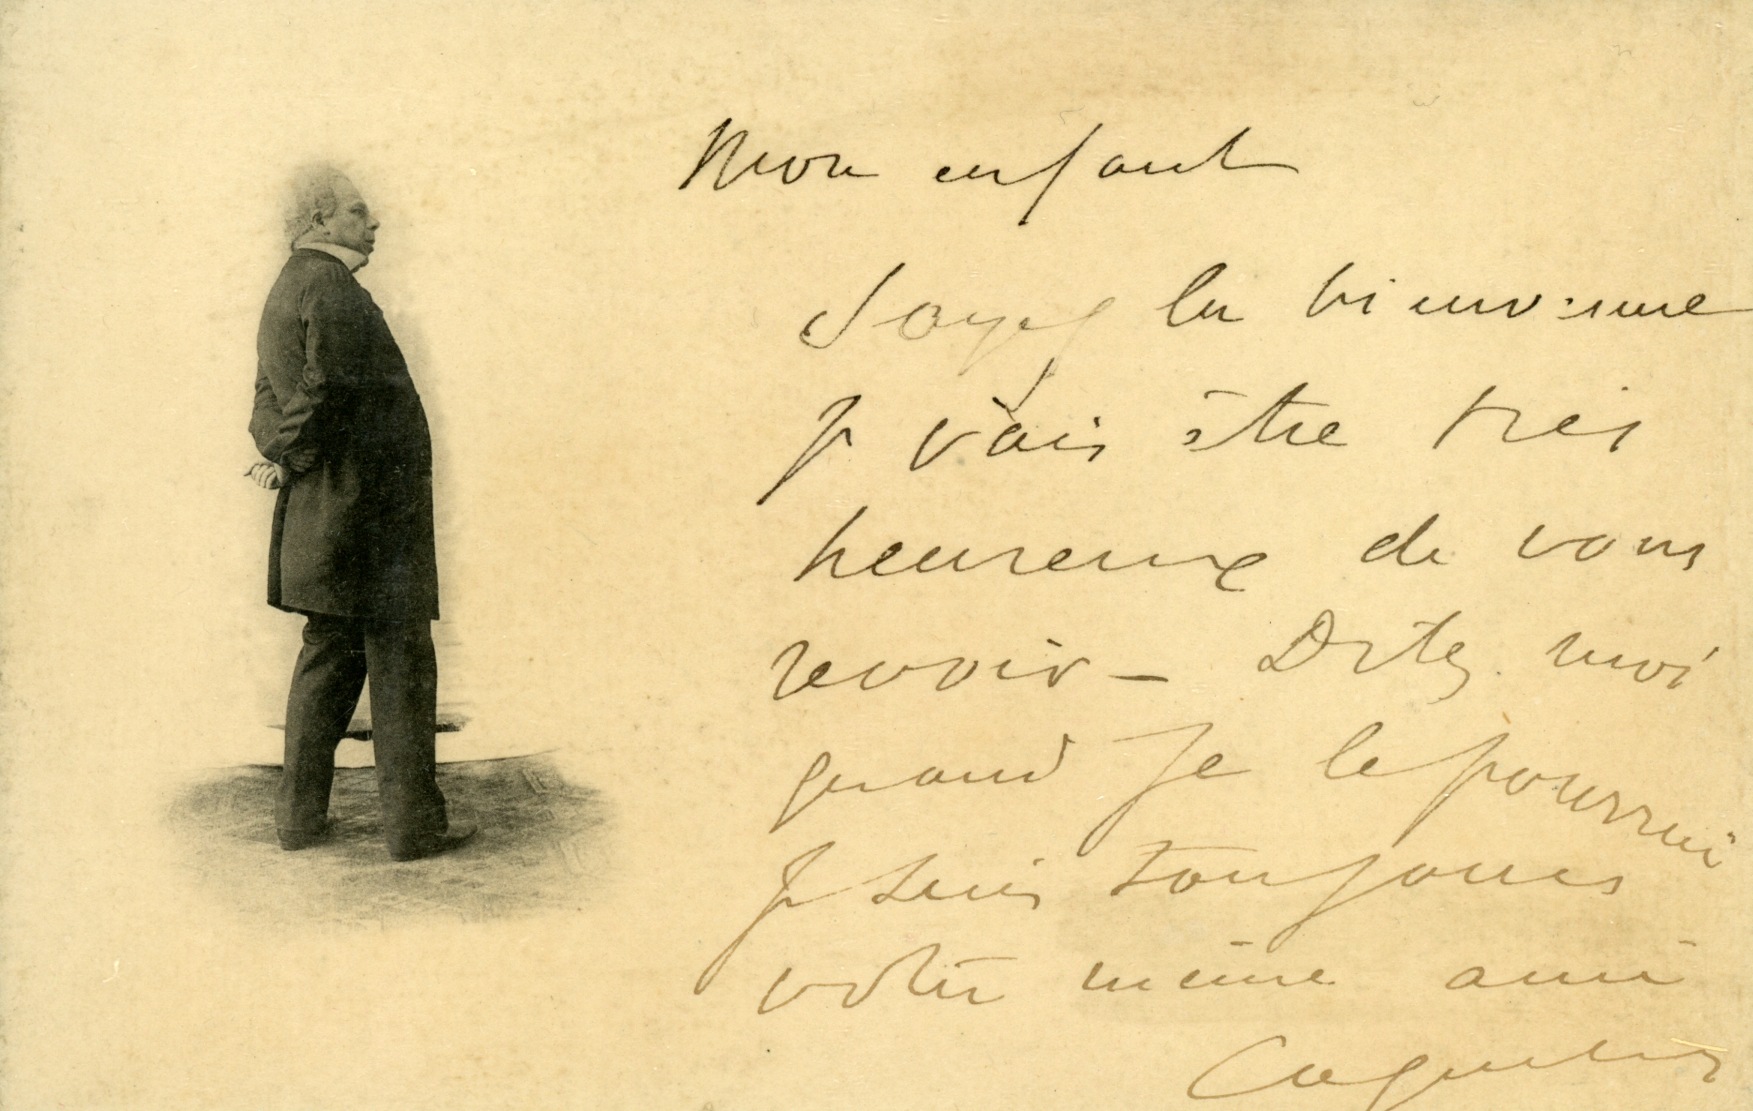 Mon enfant
Soyez la bienvenue
Je vais être très
heureux de vous
revoir – Dites moi
quand je le pourrai
Je suis toujours
votre même ami
Coquelin